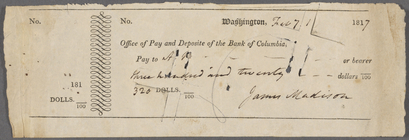 No.
No. Washington, Feb 7, 1817
Office of Pay and Deposite of the Bank of Columbia,
Pay to or bearer
three hundred and twenty dollars /100
181
320 DOLLS. /100
DOLLS. /100
James Madison